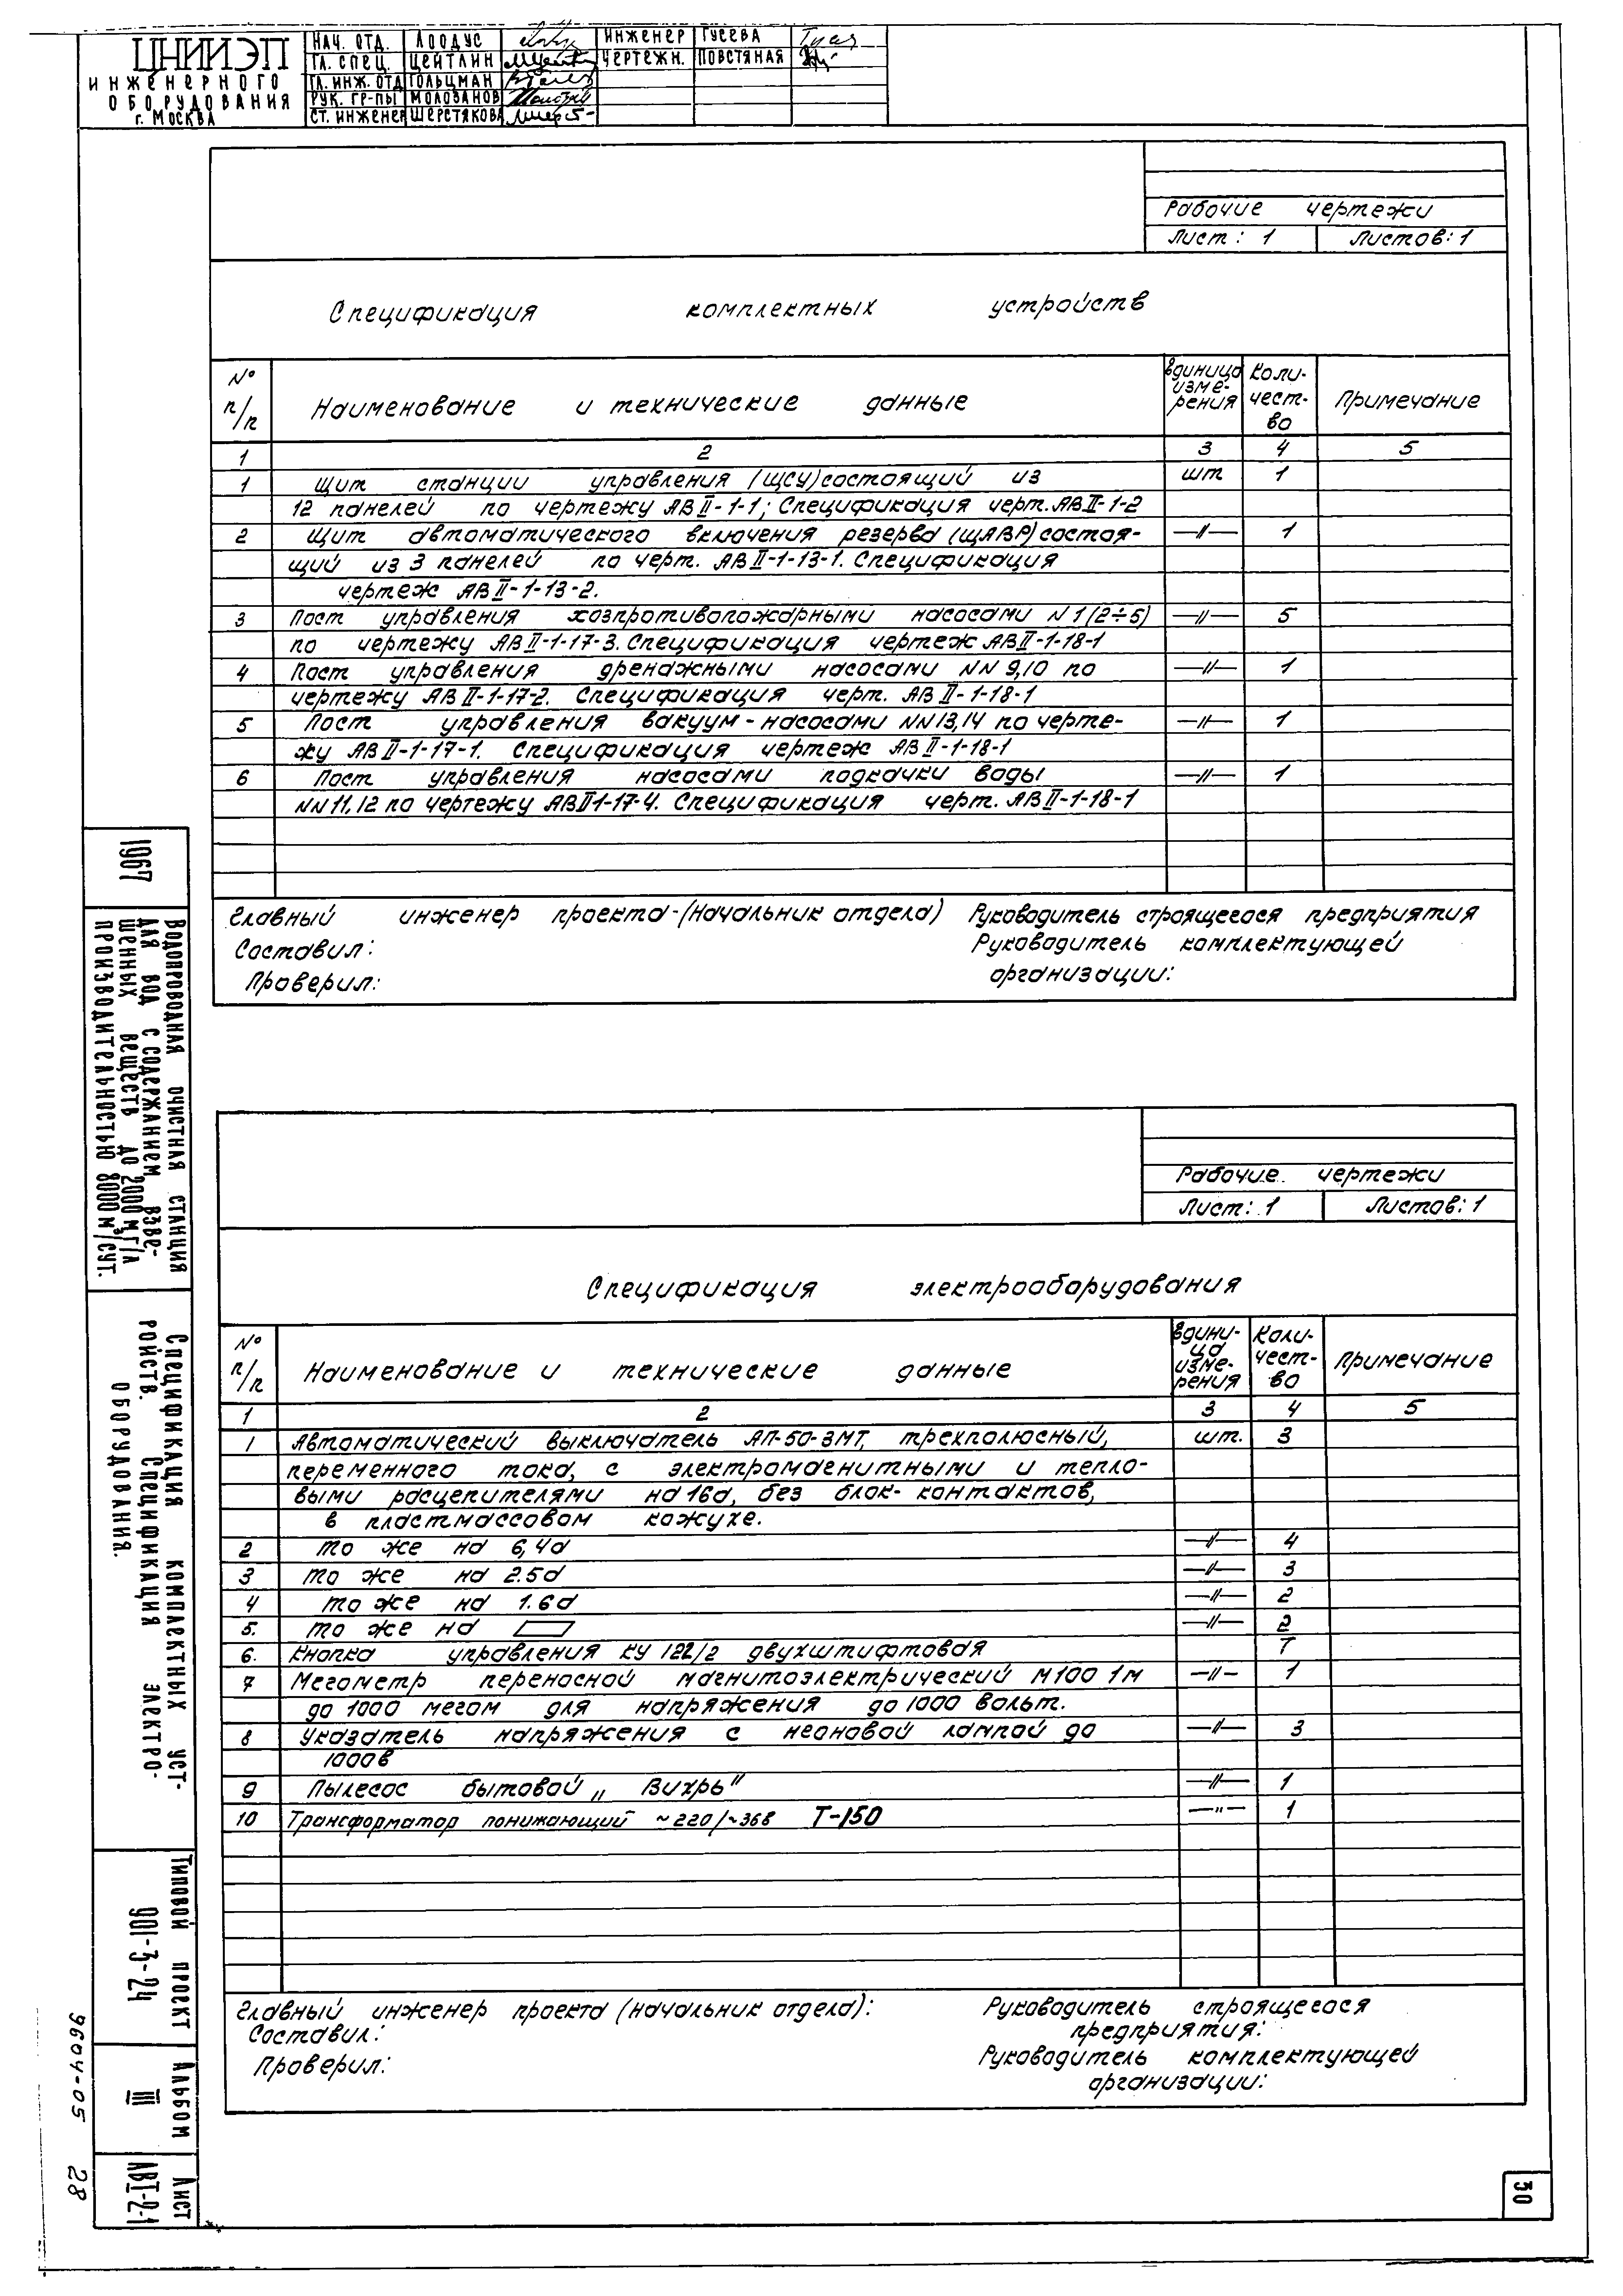 ЦНИИЭП
ИНЖЕНЕРНОГО
ОБОРУДОВАНИЯ
г. МОСКВА
НАЧ. ОТД. ЛООДУС
ГЛ. СПЕЦ. ЦЕЙТЛИН
ГЛ. ИНЖ. ОТД ГОЛЬЦМАН
РУК. ГР-ПЫ МОЛОЗАНОВ
СТ. ИНЖЕНЕР ШЕРСТЯКОВА
ИНЖЕНЕР ГУСЕВА
ЧЕРТЕЖН. ПОВСТЯНАЯ
Рабочие чертежи
Лист: 1 Листов: 1
Спецификация комплектных устройств
№ п/п Наименование и технические данные Единица изме-рения Коли-чест-во Примечание
1 2 3 4 5
1 Щит станции управления (ЩСУ) состоящий из шт 1
12 панелей по чертежу АВII-1-1; Спецификация черт. АВII-1-2
2 Щит автоматического включения резерва (ЩАВР) состоя- —||— 1
щий из 3 панелей по черт. АВII-1-13-1. Спецификация
чертеж АВII-1-13-2.
3 Пост управления хозпротивопожарными насосами N 1 (2÷5) —||— 5
по чертежу АВII-1-17-3. Спецификация чертеж АВII-1-18-1
4 Пост управления дренажными насосами NN 9,10 по —||— 1
чертежу АВII-1-17-2. Спецификация черт. АВII-1-18-1
5 Пост управления вакуум-насосами NN 13,14 по черте- —||— 1
жу АВII-1-17-1. Спецификация чертеж АВII-1-18-1
6 Пост управления насосами подкачки воды —||— 1
NN 11,12 по чертежу АВII1-17-4. Спецификация черт. АВII-1-18-1
Главный инженер проекта-(Начальник отдела) Руководитель строящегося предприятия
Составил: Руководитель комплектующей
Проверил: организации:
Рабочие. чертежи
Лист: 1 Листов: 1
Спецификация электрооборудования
№ п/п Наименование и технические данные Едини-ца изме-рения Коли-чест-во Примечание
1 2 3 4 5
1 Автоматический выключатель АП-50-3МТ, трехполюсный, шт. 3
переменного тока, с электромагнитными и тепло-
выми расцепителями на 16а, без блок-контактов,
в пластмассовом кожухе.
2 то же на 6,4а —||— 4
3 то же на 2.5а —||— 3
4 то же на 1.6а —||— 2
5. то же на —||— 2
6. Кнопка управления КУ 122/2 двухштифтовая
7 Мегометр переносной магнитоэлектрический М100 1м —||— 1
до 1000 мегом для напряжения до 1000 вольт.
8 Указатель напряжения с неоновой лампой до —||— 3
1000в
9 Пылесос бытовой „Вихрь" —||— 1
10 Трансформатор понижающий ~220/~36в Т-150 —"— 1
Главный инженер проекта (начальник отдела): Руководитель строящегося
Составил: предприятия:
Проверил: Руководитель комплектующей
организации:
1967
ВОДОПРОВОДНАЯ ОЧИСТНАЯ СТАНЦИЯ
ДЛЯ ВОД С СОДЕРЖАНИЕМ ВЗВЕ-
ШЕННЫХ ВЕЩЕСТВ ДО 2000 МГ/Л
ПРОИЗВОДИТЕЛЬНОСТЬЮ 8000 М³/СУТ.
СПЕЦИФИКАЦИЯ КОМПЛЕКТНЫХ УСТ-
РОЙСТВ. СПЕЦИФИКАЦИЯ ЭЛЕКТРО-
ОБОРУДОВАНИЯ.
ТИПОВОЙ ПРОЕКТ
901-3-24
АЛЬБОМ
III
ЛИСТ
АВI-2-1
9604-05 28
30